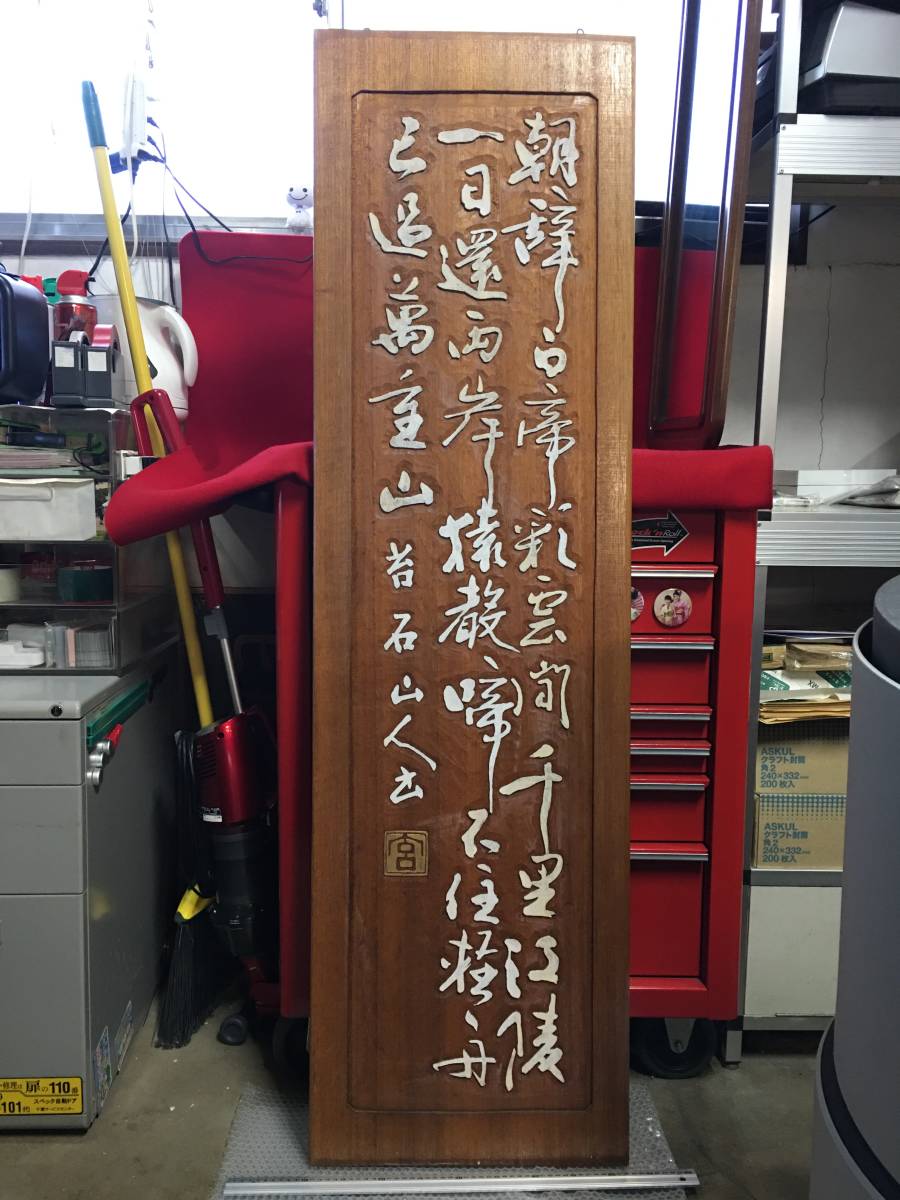 朝辞白帝彩雲間千里江陵
一日還両岸猿聲啼不住軽舟
已過萬重山 苔石山人書
宮
ASKUL
クラフト封筒
角2
240×332mm
200枚入
ASKUL
クラフト封筒
角2
240×332mm
200枚入
修理は 扉の110番
スペック自動ドア
101代